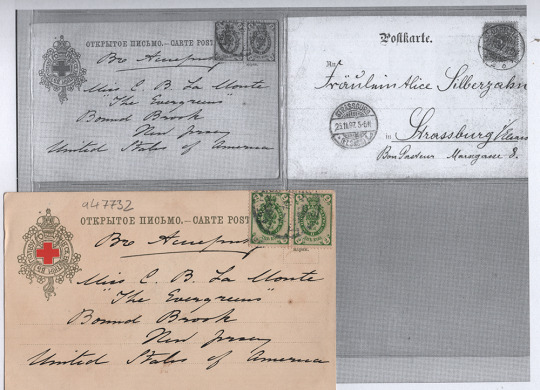 ОТКРЫТОЕ ПИСЬМО.—CARTE POST
Во Америку
Miss C. B. La Monte
"The Evergreens"
Bound Brook
New Jersey
United States of America
Postkarte.
An
Fräulein Alice Silberzahn
STRASSBURG
23.11.97. 5-6N
in Strassburg
Bon Pasteur
8.
a47732
ОТКРЫТОЕ ПИСЬМО.—CARTE POST
Во Америку
Miss C. B. La Monte
"The Evergreens"
Bound Brook
New Jersey
United States of America